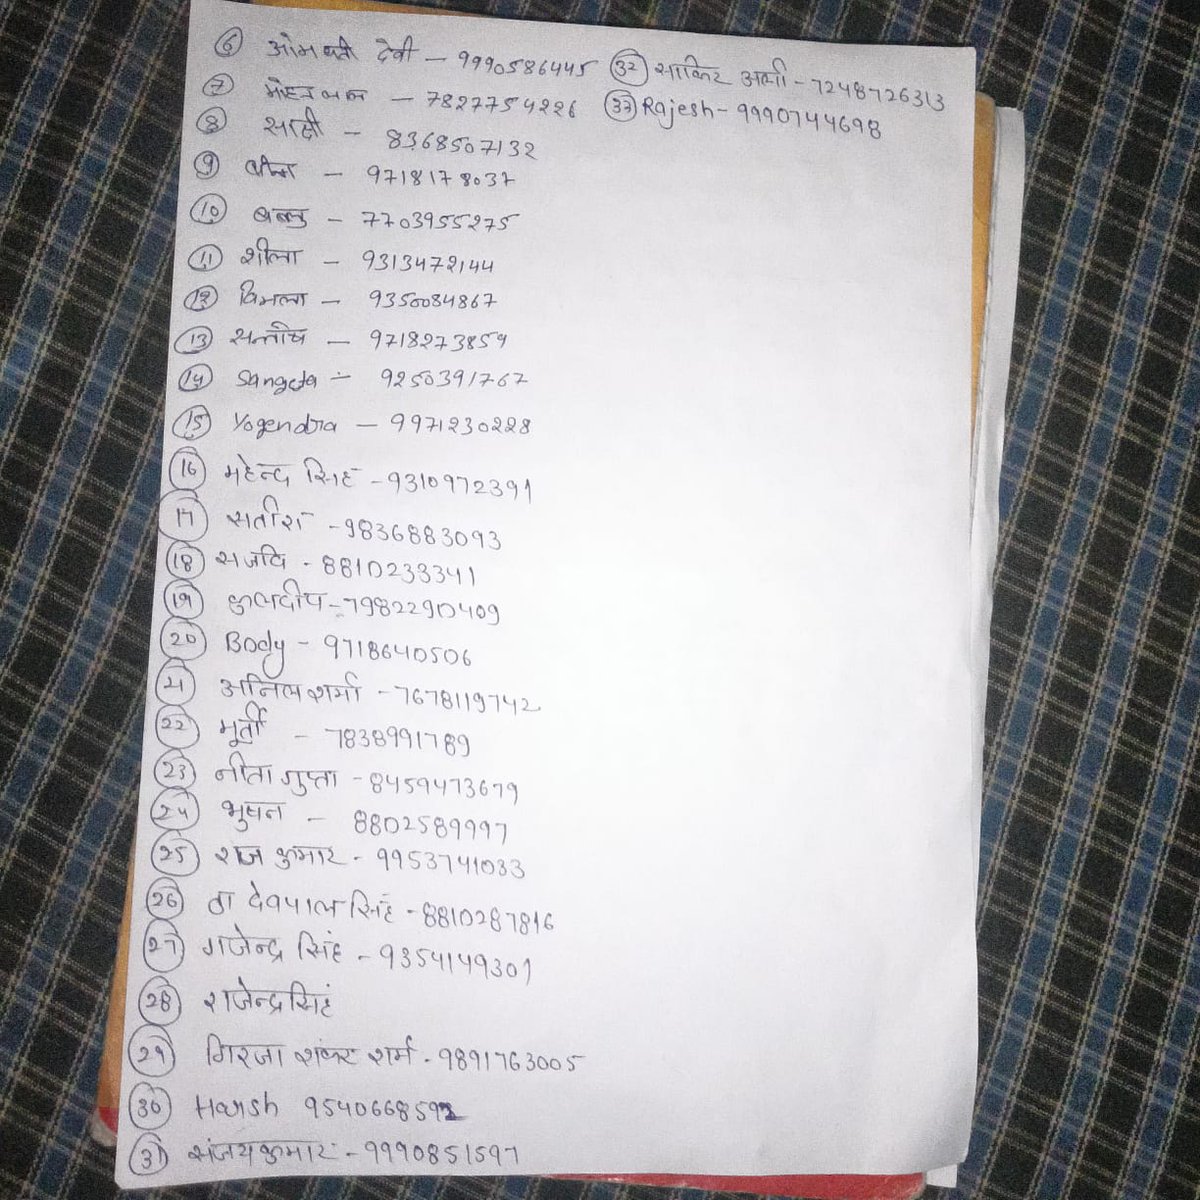 6 ओमवती देवी - 9990586445
7 - 7827754226
8 साक्षी - 8368507132
9 - 9718178037
10 बबलु - 7703955275
11 शीला - 9313472144
12 विमला - 9350084867
13 सन्तोष - 9718273859
14 Sangeta - 9250391767
15 Yogendra - 9971230228
16 महेन्द्र सिंह - 9310972391
17 सतीश - 9836883093
18 - 8810233341
19 कुलदीप - 7982290409
20 Body - 9718640506
21 अनिल शर्मा - 7678119742
22 मूर्ती - 7838991789
23 नीता गुप्ता - 8459473679
24 भुषन - 8802589997
25 राज कुमार - 9953741033
26 ठा देवपाल सिंह - 8810287816
27 गजेन्द्र सिंह - 9354149301
28 राजेन्द्र सिंह
29 गिरजा शंकर शर्मा - 9891763005
30 Harish
31 संजय कुमार - 9990851597
32 साकिर अली - 7248726313
33 Rajesh - 9990744698